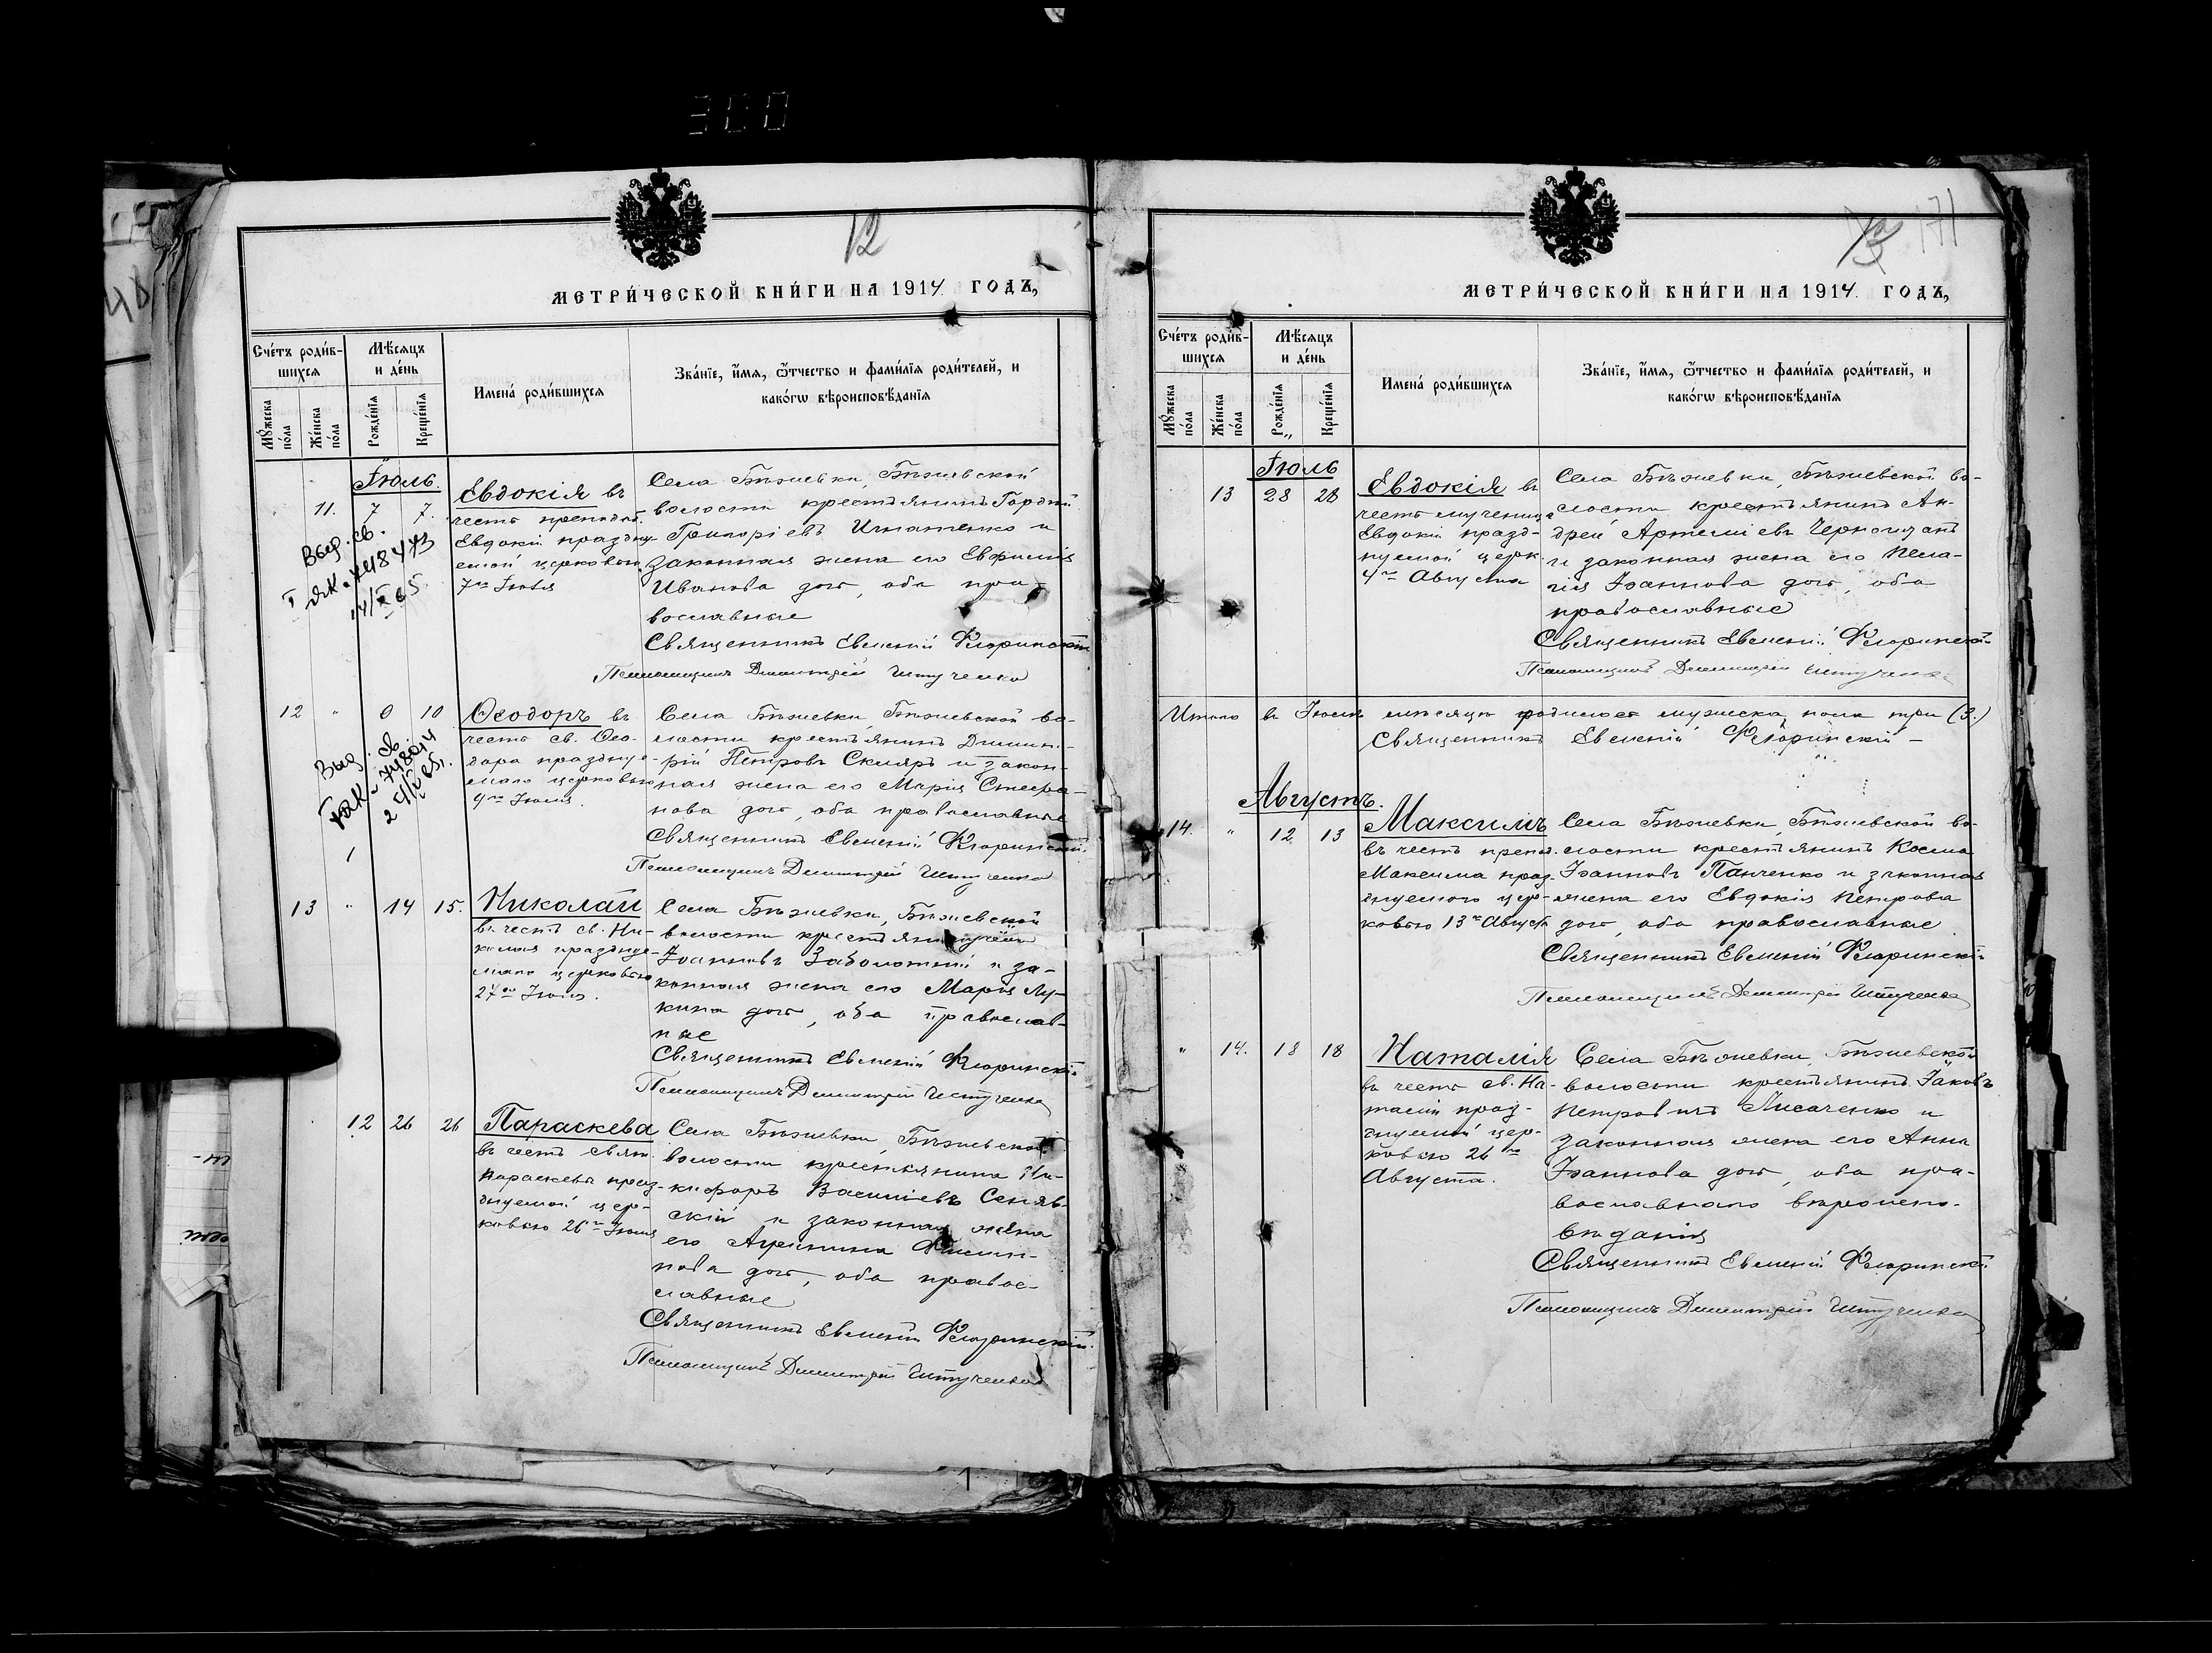 300
12
МЕТРИ́ЧЕСКОЙ КНИ́ГИ НА 1914 ГОДЪ,
Сче́тъ роди́в-
шихся
Мѣ́сяцъ
и де́нь
Имена́ роди́вшихся
Зва́нїе, и́мя, ѻ́тчество и фами́лїя роди́телей, и
како́гѡ вѣроисповѣ́данїя
Мꙋ́жеска
по́ла
Же́нска
по́ла
Рожде́нїя
Креще́нїя
Іюль.
11. 7 7.
Евдокія въ
честь преподоб.
Евдокіи праздну-
емой церковью
7го Іюля
Села Бѣжевки, Бѣжевской
волости крестьянинъ Гордій
Григоріевъ Игнатенко и
законная жена его Евфимія
Иванова дочь, оба пра-
вославные
Священникъ Евменій Флоринскій
Псаломщикъ Димитрій Штученко
Выд. св.
12 " 9 10
Ѳеодоръ въ
честь св. Ѳео-
дора праздну-
емаго церковью
Села Бѣжевки, Бѣжевской во-
лости крестьянинъ Димит-
рій Петровъ Скляръ и закон-
ная жена его Марія Стефа-
нова дочь, оба православные
Священникъ Евменій Флоринскій.
Псаломщикъ Димитрій Штученко
Выд. св.
13 " 14 15.
Николай
въ честь св. Ни-
колая праздну-
емаго церковью
27го Іюля.
Села Бѣжевки, Бѣжевской
волости крестьянинъ
Іоанновъ Заболотный и за-
конная жена его Марія Лу-
кина дочь, оба православ-
ные
Священникъ Евменій Флоринскій
Псаломщикъ Димитрій Штученко
12 26 26
Параскева
въ честь свят.
Параскевы праз-
днуемой цер-
ковью 26го Іюля
Села Бѣжевки, Бѣжевской
волости крестьянинъ Ни-
кифоръ Василіевъ Сеняв-
скій и законная жена
его Агрипина Филип-
пова дочь, оба правос-
лавные
Священникъ Евменій Флоринскій.
Псаломщикъ Димитрій Штученко
171
МЕТРИ́ЧЕСКОЙ КНИ́ГИ НА 1914. ГОДЪ,
Сче́тъ роди́в-
шихся
Мѣ́сяцъ
и де́нь
Имена́ роди́вшихся
Зва́нїе, и́мя, ѻ́тчество и фами́лїя роди́телей, и
како́гѡ вѣроисповѣ́данїя
Мꙋ́жеска
по́ла
Же́нска
по́ла
Рожде́нїя
Креще́нїя
Іюль
13 28 28
Евдокія въ
честь мученицы
Евдокіи празд-
нуемой церк.
4го Августа
Села Бѣжевки, Бѣжевской во-
лости крестьянинъ Ан-
дрей Артеміевъ
и законная жена его Пела-
гія Іоаннова дочь, оба
православные
Священникъ Евменій Флоринскій
Псаломщикъ Димитрій Штученко
Итого въ Іюлѣ мѣсяцѣ родилось мужеска пола три (3.)
Священникъ Евменій Флоринскій
Августъ.
14. " 12 13
Максимъ
въ честь препод.
Максима праз-
днуемого цер-
ковью 13го Августа
Села Бѣжевки, Бѣжевской во-
лости крестьянинъ Косма
Іоанновъ Панченко и законная
жена его Евдокія Петрова
дочь, оба православные
Священникъ Евменій Флоринскій
Псаломщикъ Димитрій Штученко
" 14. 18 18
Наталія
въ честь св. На-
таліи праз-
днуемой цер-
ковью 26го
Августа.
Села Бѣжевки, Бѣжевской
волости крестьянинъ Іаковъ
Петровичъ Лисаченко и
законная жена его Анна
Іоаннова дочь, оба пра-
вославнаго вѣроиспо-
вѣданія
Священникъ Евменій Флоринскій
Псаломщикъ Димитрій Штученко